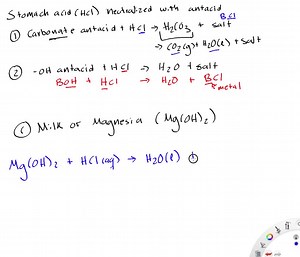 Stomach acid (HCl) neutralized with antacid
① Carbonate antacid + HCl → H₂CO₃ + salt BCl
→ CO₂(g) + H₂O(l) + salt
② -OH antacid + HCl → H₂O + salt
BOH + HCl → H₂O + BCl
metal
Milk or Magnesia (Mg(OH)₂)
Mg(OH)₂ + HCl(aq) → H₂O(l)